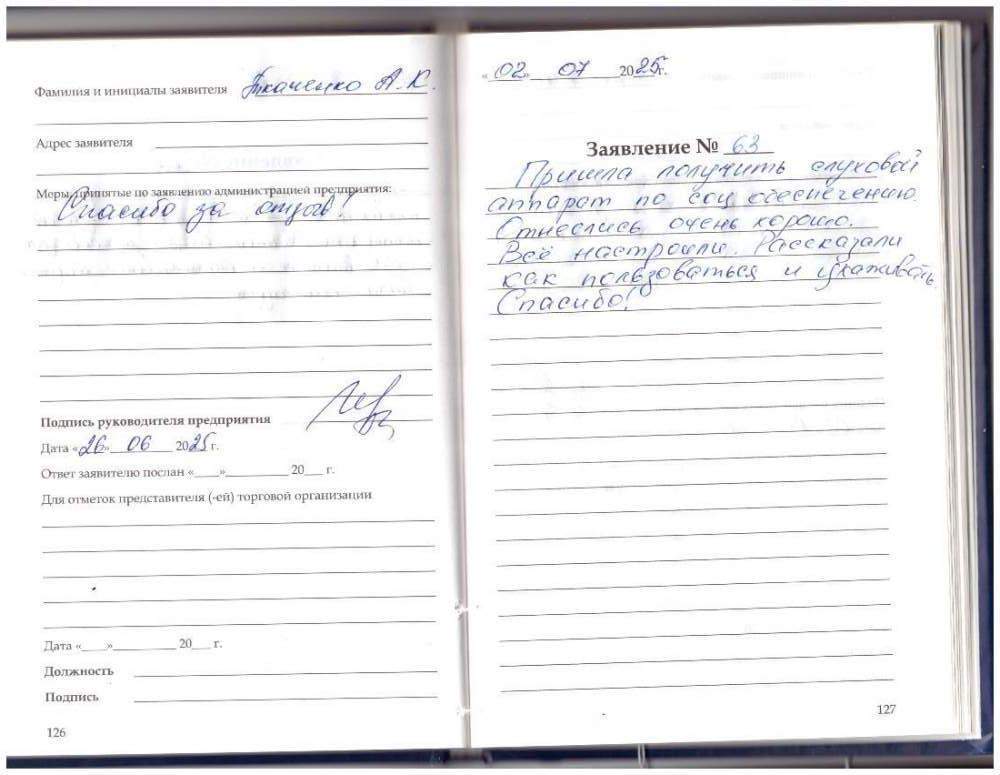 Фамилия и инициалы заявителя Ткаченко А.К.
Адрес заявителя
Меры, принятые по заявлению администрацией предприятия:
Спасибо за отзыв!
Подпись руководителя предприятия
Дата «26» 06 2025 г.
Ответ заявителю послан «____»__________ 20___ г.
Для отметок представителя (-ей) торговой организации
Дата «____»__________ 20___ г.
Должность
Подпись
126
«02» 07 2025г.
Заявление № 63
Пришла получить слуховой
аппарат по соц обеспечению.
Отнеслись очень хорошо.
Всё настроили. Рассказали
как пользоваться и ухаживать.
Спасибо!
127